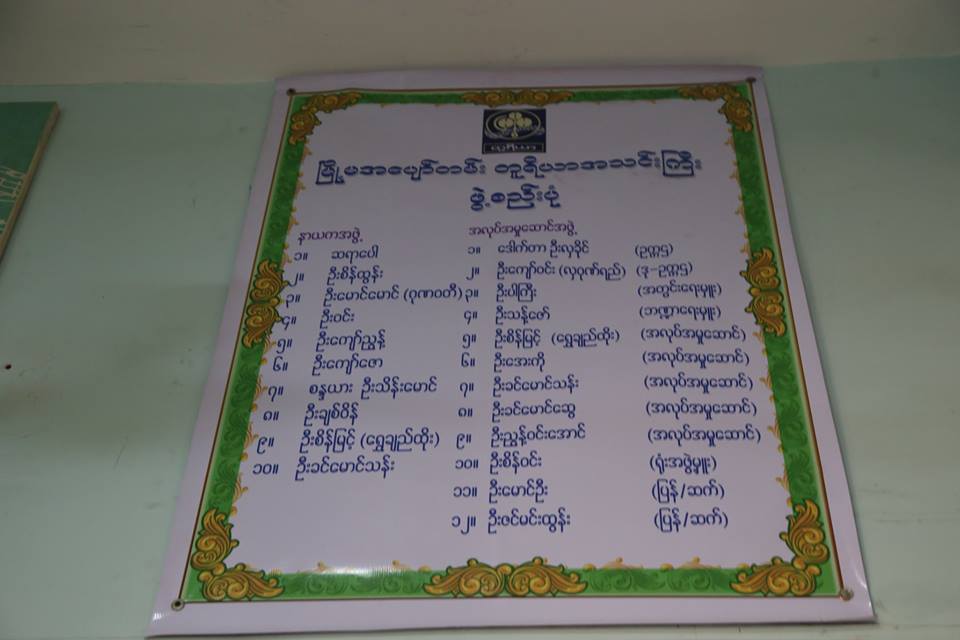 တူရိယာ
မြို့မအပျော်တမ်း တူရိယာအသင်းကြီး
ဖွဲ့စည်းပုံ
နာယကအဖွဲ့
၁။ ဆရာပေါ
၂။ ဦးစိန်ထွန်း
၃။ ဦးမောင်မောင် (ဂုဏဝတီ)
၄။ ဦးဝင်း
၅။ ဦးကျော်ညွန့်
၆။ ဦးကျော်ဇော
၇။ စန္ဒယား ဦးသိန်းမောင်
၈။ ဦးချစ်ဝိန်
၉။ ဦးစိန်မြင့် (ရွှေချည်ထိုး)
၁၀။ ဦးခင်မောင်သန်း
အလုပ်အမှုဆောင်အဖွဲ့
၁။ ဒေါက်တာ ဦးလှခိုင် (ဥက္ကဌ)
၂။ ဦးကျော်ဝင်း (လှဂုဏ်ရည်) (ဒု-ဥက္ကဌ)
၃။ ဦးပါကြီး (အတွင်းရေးမှူး)
၄။ ဦးသန့်ဇော် (ဘဏ္ဍာရေးမှူး)
၅။ ဦးစိန်မြင့် (ရွှေချည်ထိုး) (အလုပ်အမှုဆောင်)
၆။ ဦးအေးကို (အလုပ်အမှုဆောင်)
၇။ ဦးခင်မောင်သန်း (အလုပ်အမှုဆောင်)
၈။ ဦးခင်မောင်ဆွေ (အလုပ်အမှုဆောင်)
၉။ ဦးညွန့်ဝင်းအောင် (အလုပ်အမှုဆောင်)
၁၀။ ဦးစိန်ဝင်း (ရုံးအဖွဲ့မှူး)
၁၁။ ဦးမောင်ဦး (ပြန်/ဆက်)
၁၂။ ဦးဇင်မင်းထွန်း (ပြန်/ဆက်)